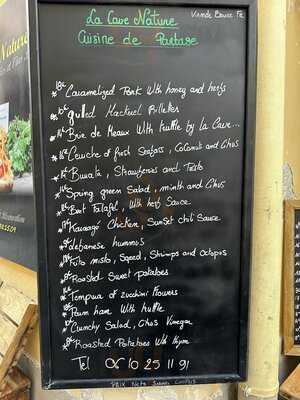 La Cave Nature
Viande Bovine Fr
Cuisine de Partage
Caramelized Pork With honey and herbs
Mackerel Filletes
Brie de Meaux With truffle by La Cave...
of fresh Seabass, Coconut and Citrus
Burata, Strawberries and Pesto
Spring green Salad, minth and Citrus
Beet Falafel, With herb Sauce
Karaage Chicken, Sunset chili Sauce
Lebanese hummous
Frito misto, Sqeed, Shrimps and Octopus
Roasted Sweet potatoes
Tempura of zucchini Flowers
Parm ham With truffle
Crunchy Salad, Citrus Vinegar
Roasted Potatoes With thym
Tel 06 10 25 11 91
PRIX Nets Service Compris